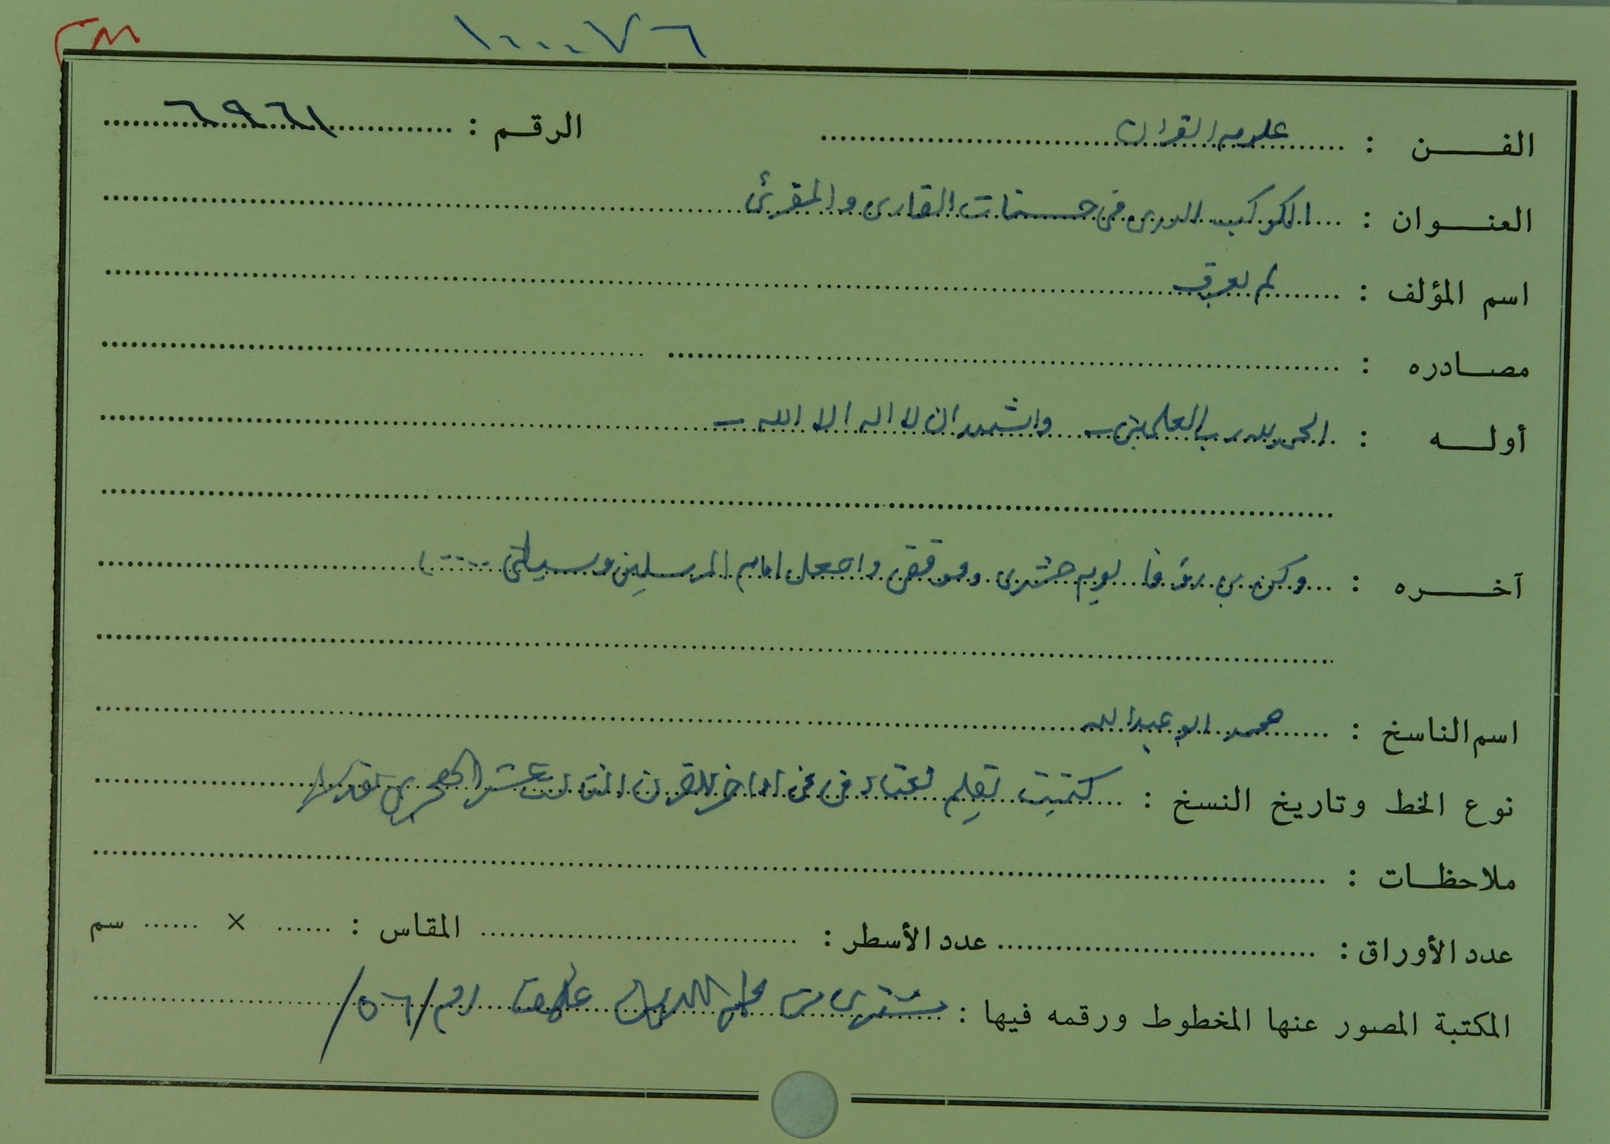 ١٠٠٠٠٧٦
الفن : علوم القران الرقم : ٦٩٦١
العنوان : الكوكب الدرى فى حسنات القارى والمقرئ
اسم المؤلف : لم يعرف
مصادره :
أوله : الحمد لله رب العلمين - واشهد ان لا اله الا الله -
آخره : وكن بى رؤفا يوم حشرى وموقفى واجعل امام المرسلين وسيلتى
اسم الناسخ : محمد ابو عبدالله
نوع الخط وتاريخ النسخ : كتبت بقلم معتاد فى اواخر القرن الثالث عشر الهجرى تقديرا
ملاحظات :
عدد الأوراق : عدد الأسطر : المقاس : × سم
المكتبة المصور عنها المخطوط ورقمه فيها : مشترى من رقم /٥٦/